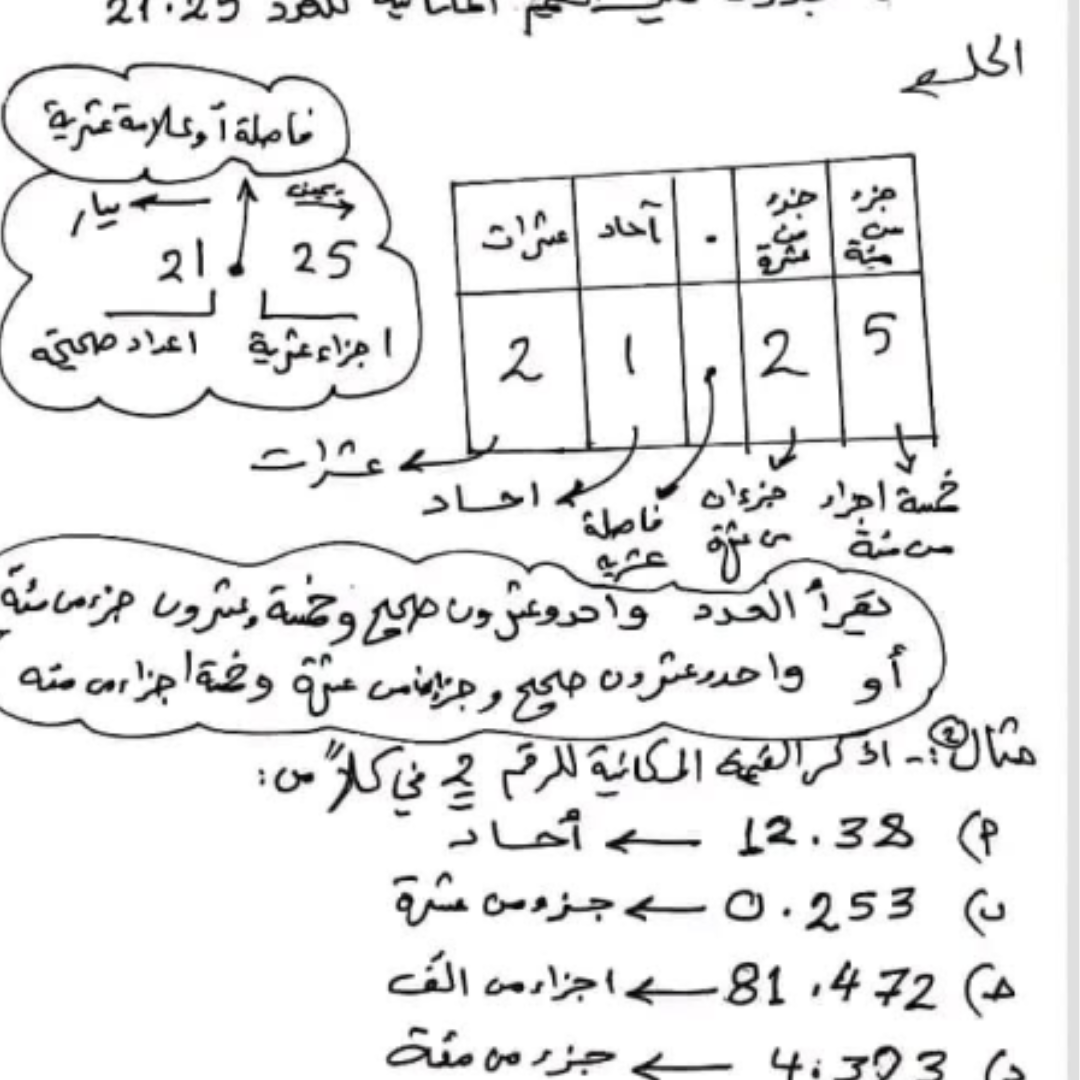 للعدد 21.25
الحل
فاصلة أو علامة عشرية
يسار يمين
21 . 25
اعداد صحيحة اجزاء عشرية
عشرات آحاد . جزء من عشرة جزء من مئة
2 1 . 2 5
عشرات
احاد
فاصلة عشرية
جزءان من عشرة
خمسة اجزاء من مئة
نقرأ العدد واحد وعشرون صحيح وخمسة وعشرون جزء من مئة
أو واحد وعشرون صحيح وجزءان من عشرة وخمسة اجزاء من مئه
مثال ②:- اذكر القيمة المكانية للرقم 2 في كلاً من:
أ) 12.38 ← أحاد
ب) 0.253 ← جزء من عشرة
ج) 81.472 ← اجزاء من الف
د) ← جزء من مئة